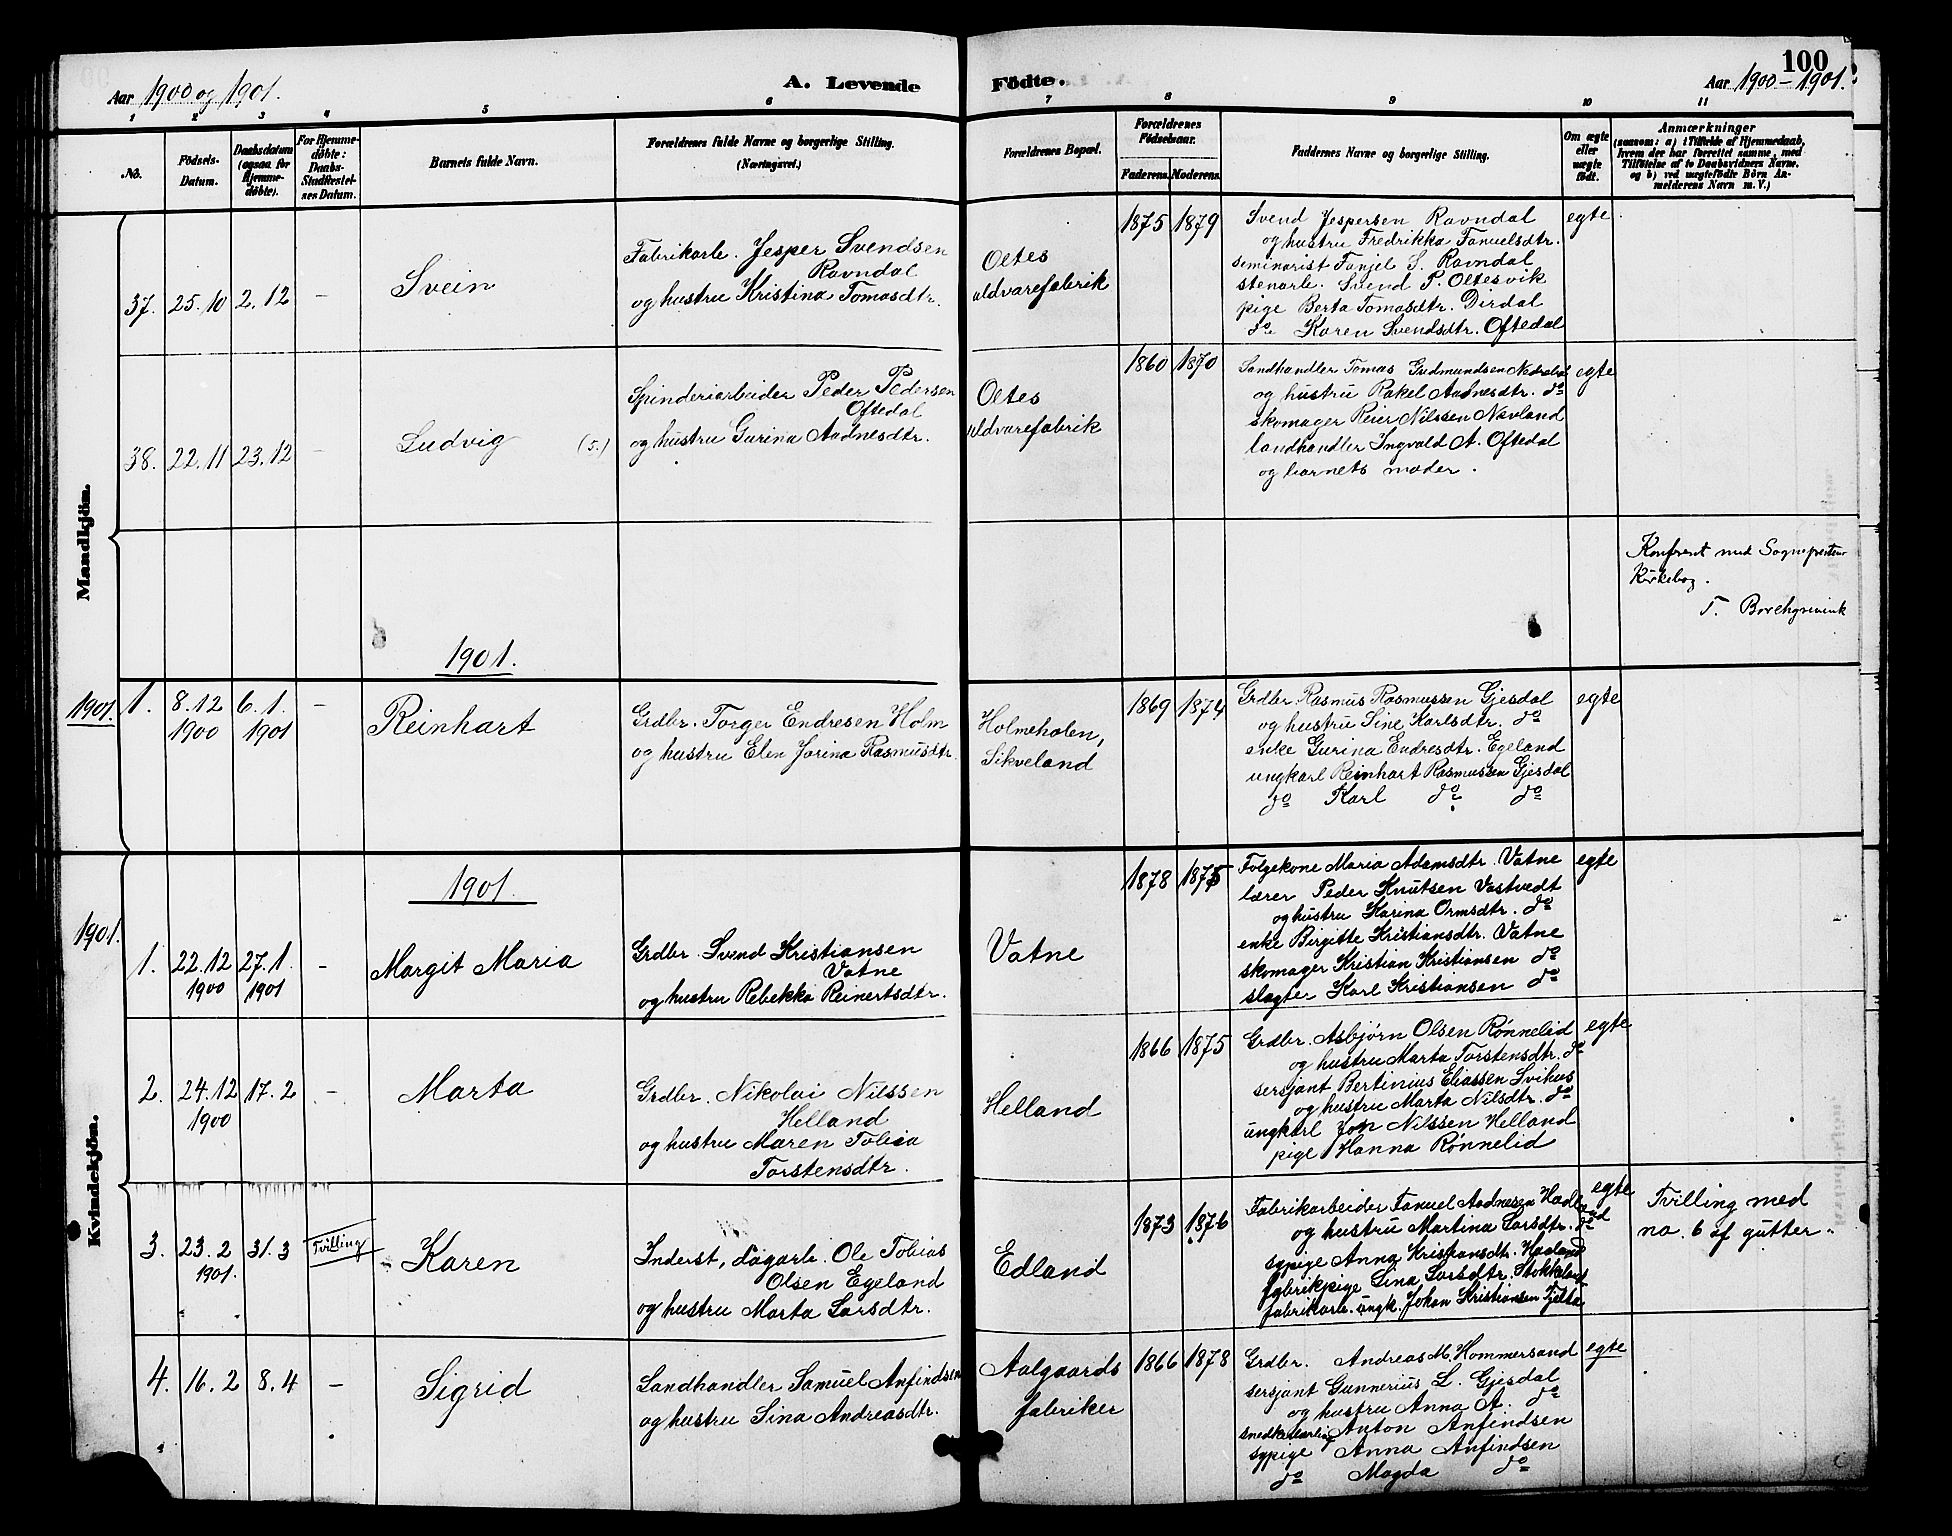 Aar 1900 og 1901.
A. Levende
Födte.
100
Aar 1900-1901.
1 2 3 4 5 6 7 8 9 10 11
No.
Födsels-
Datum.
Daabsdatum
(ogsaa for
Hjemme-
döbte).
For Hjemme-
döbte:
Daabs-
Stadfæstel-
ses Datum.
Barnets fulde Navn.
Forældrenes fulde Navne og borgerlige Stilling.
(Næringsvei.)
Forældrenes Bopæl.
Forældrenes
Födselsaar.
Faderens. Moderens.
Faddernes Navne og borgerlige Stilling.
Om ægte
eller
uægte
födt.
Anmærkninger
(saasom: a) i Tilfælde af Hjemmedaab,
hvem der har forrettet samme, med
Tilföielse af to Daabsvidners Navne,
og b) ved uægtefödte Börn An-
melderens Navn m. V.)
Mandkjön.
37. 25.10 2.12 -
Svein
Fabrikarb. Jesper Svendsen
Ravndal
og hustru Kristina Tomasdtr.
Oltes
uldvarefabrik
1875 1879
Svend Jespersen Ravndal
og hustru Fredrikka Tanuelsdtr.
seminarist Tonjel S. Ravndal
stenarb. Svend P. Oltesvik
pige Berta Tomasdtr. Dirdal
do Karen Svendsdtr. Oftedal
egte.
38. 22.11 23.12 -
Ludvig (5.)
Spinderiarbeider Peder Pedersen
Oftedal
og hustru Gurina Aadnesdtr.
Oltes
uldvarefabrik
1860 1870
Landhandler Tomas Gudmundsen Nedrebø
og hustru Rakel Aadnesdtr. do
skomager Reier Nilssen Nevland
landhandler Ingvald A. Oftedal
og barnets moder.
egte
Konferert med Sogneprestens
Kirkebog.
T. Borchgrevink
1901.
1901. 1. 8.12
1900
6.1.
1901
-
Reinhart
Grdbr. Torger Endresen Holm
og hustru Elen Jorina Rasmusdtr.
Holmeholen,
Sikveland
1869 1874
Grdbr. Rasmus Rasmussen Gjesdal
og hustru Sine Karlsdtr. do
enke Gurina Endresdtr. Egeland
ungkarl Reinhart Rasmussen Gjesdal
do Karl do do
egte
Kvindekjön.
1901.
1901.
1. 22.12
1900
27.1.
1901
-
Margit Maria
Grdbr. Svend Kristiansen
Vatne
og hustru Rebekka Reinertsdtr.
Vatne
1878 1875
Folgekone Maria Adamsdtr. Vatne
lærer Peder Knutsen Vastvedt
og hustru Karina Ormsdtr. do
enke Birgitte Kristiansdtr. Vatne
skomager Kristian Kristiansen do
slagter Karl Kristiansen do
egte
2. 24.12
1900
17.2 -
Marta
Grdbr. Nikolai Nilssen
Helland
og hustru Maren Tobia
Torstensdtr.
Helland
1866 1875
Grdbr. Asbjørn Olsen Rønnelid
og hustru Marta Torstensdtr. do
sersjant Bertinius Eliassen Svihus
og hustru Marta Nilsdtr. do
ungkarl Jon Nilssen Helland
pige Hanna Rønnelid
egte
3. 23.2
1901.
31.3 Tvilling
Karen
Inderst, dagarb. Ole Tobias
Olsen Egeland
og hustru Marta Larsdtr.
Edland
1873 1876
Fabrikarbeider Tanuel Aadnesen
og hustru Martina Larsdtr. do
sypige Anna Kristiansdtr. Haaland
fabrikpige Sina Larsdtr. Stokkeland
fabrikarb. ungk. Johan Kristiansen Tjelta
egte
Tvilling med
no. 6 af gutter.
4. 16.2 8.4 -
Sigrid
Landhandler Samuel Anfindsen
og hustru Sina Andreasdtr.
Aalgaards
fabriker
1866 1878
Grdbr. Andreas M. Hommersand
sersjant Gunnerius L. Gjesdal
og hustru Anna A. do
snedkerlærling Anton Anfindsen
sypige Anna Anfindsen
do Magda do
egte